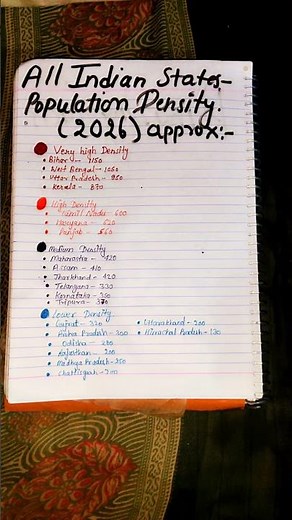 All Indian States-
Population Density.
(2026) approx:-
Very high Density
• Bihar - 1150
• West Bengal - 1050
• Uttar Pradesh - 950
• Kerala - 870
High Density
• Tamil Nadu - 600
• Haryana - 620
• Punjab - 560
Medium Density
• Maharastra - 420
• Assam - 410
• Jharkhand - 420
• Telangana - 330
• Karnataka - 350
• Tripura - 370
Lower Density
• Gujrat - 320
• Andhra Pradesh - 300
• Odisha - 280
• Rajasthan - 200
• Madhya Pradesh - 250
• Chattisgarh - 200
• Uttarakhand - 200
• Himachal Pradesh - 130